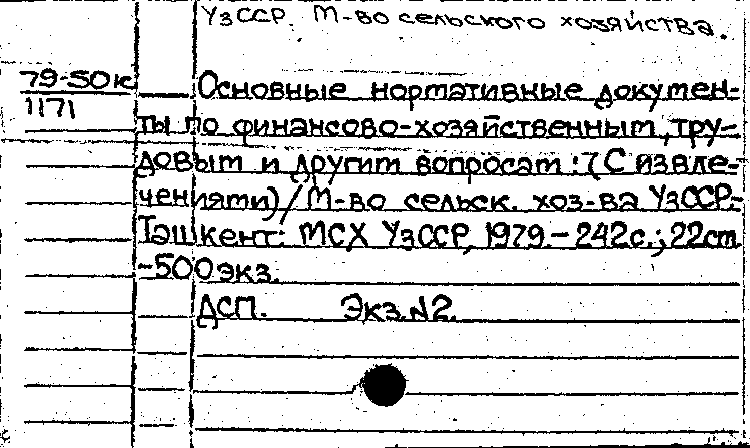 УзССР. М-во сельского хозяйства.
79-50к
1171
Основные нормативные докумен-
ты по финансово-хозяйственным, тру-
довым и другим вопросам: (С извле-
чениями)/М-во сельск. хоз-ва УзССР.-
Ташкент: МСХ УзССР, 1979.- 242с.; 22см
-500экз.
ДСП. Экз.№2.